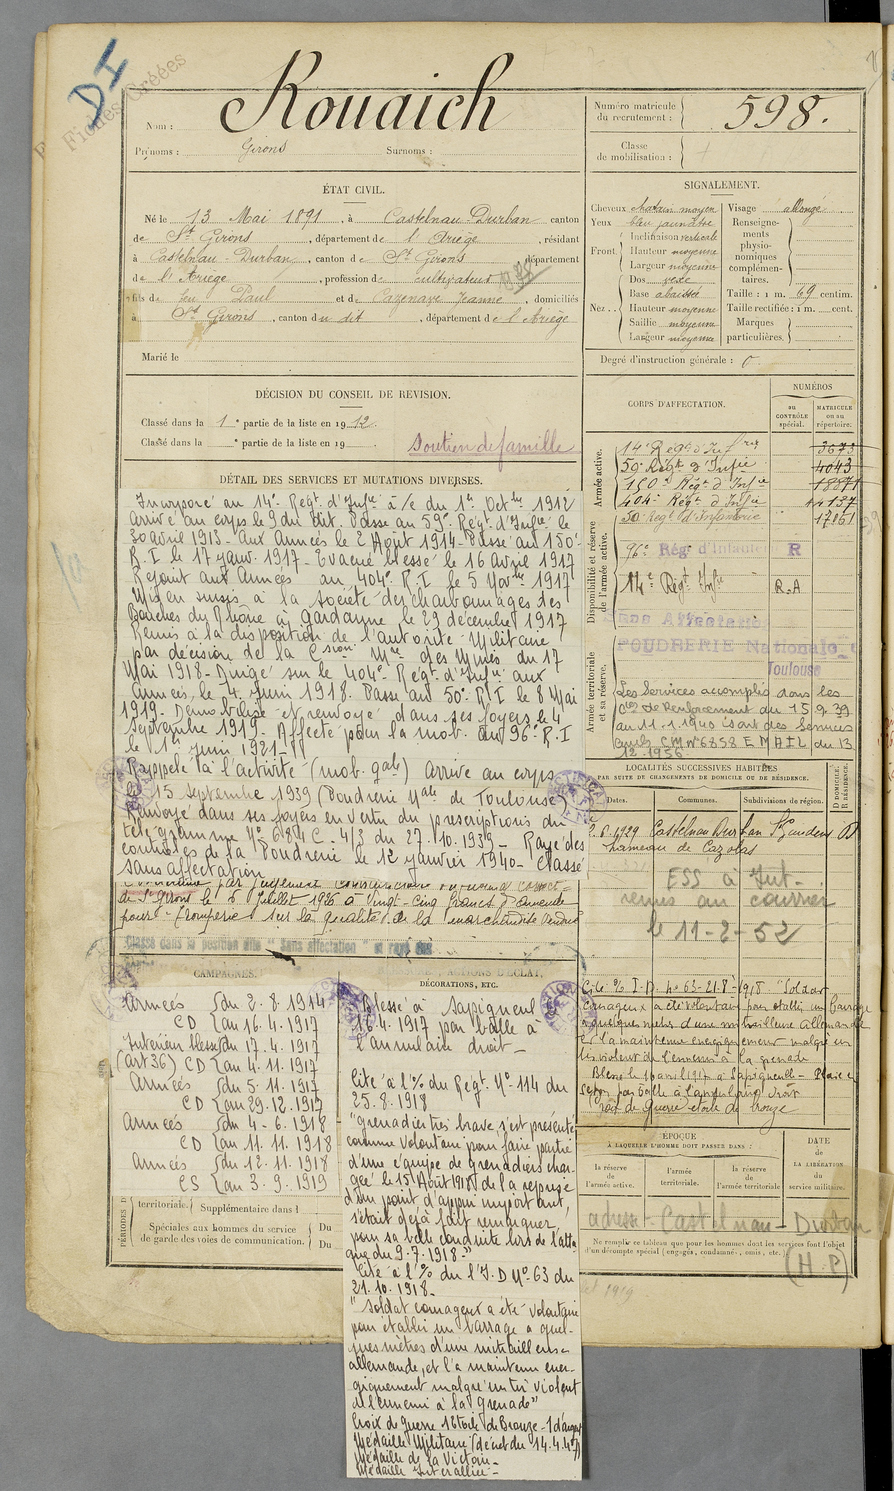 DI
Fiches Créées
Nom : Rouaich
Prénoms : Girons Surnoms :
Numéro matricule du recrutement : 598.
Classe de mobilisation :
ÉTAT CIVIL.
Né le 13 Mai 1891, à Castelnau-Durban canton
de St Girons, département de l'Ariège, résidant
à Castelnau-Durban, canton de St Girons département
de l'Ariège, profession de cultivateur
fils de feu Paul et de Cazenave Jeanne, domiciliés
à St Girons, canton du dit, département de l'Ariège
Marié le
SIGNALEMENT.
Cheveux chatain moyen
Yeux bleu jaunâtre
Front Inclinaison verticale
Hauteur moyenne
Largeur moyenne
Nez Dos vexe
Base abaissée
Hauteur moyenne
Saillie moyenne
Largeur moyenne
Visage allongé
Renseignements physionomiques complémentaires.
Taille : 1 m. 69 centim.
Taille rectifiée : 1 m. cent.
Marques particulières.
Degré d'instruction générale : 0
DÉCISION DU CONSEIL DE REVISION.
Classé dans la 1e partie de la liste en 1912.
Classé dans la e partie de la liste en 19
Soutien de famille
DÉTAIL DES SERVICES ET MUTATIONS DIVERSES.
Incorporé au 14e Regt d'Infie à/c du 1er Octbre 1912
Arrivé au corps le 9 du dit. Passé au 59e Regt d'Infie le
30 avril 1913 - Aux Armées le 2 Août 1914 - Passé au 150e
R.I le 17 janv. 1917 - Evacué blessé le 16 Avril 1917
Rejoint aux Armées au 404e R.I le 5 Novbre 1917
Mis en sursis à la Société des charbonnages des
Bouches du Rhône à Gardanne le 29 décembre 1917
Remis à la disposition de l'autorité Militaire
par décision de la Cson Mre des Mines du 17
Mai 1918 - Dirigé sur le 404e Régt d'Infie aux
Armées, le 4 Juin 1918. Passé au 50e R.I le 8 Mai
1919 - Démobilisé et renvoyé dans ses foyers le 4
Septembre 1919. Affecté pour la mob. au 96e R.I
le 1er Juin 1921
Rappelé à l'activité (mob. gale) Arrivé au corps
le 15 Septembre 1939 (Poudrerie Nale de Toulouse)
Renvoyé dans ses foyers en vertu du prescriptions du
télégramme No 6184 C - 4/3 du 27.10.1939 - Rayé des
contrôles de la Poudrerie le 12 janvier 1940 - Classé
sans affectation
de St Girons le 6 Juillet 1926 à Vingt-Cinq francs d'amende
pour "Tromperie sur la qualité de la marchandise vendue
Classé dans la position dite "Sans affectation" et rayé des
CORPS D'AFFECTATION.
NUMÉROS
au CONTRÔLE spécial.
MATRICULE ou au répertoire.
Armée active.
14e Régt d'Infrie 3673
59e Régt d'Infie 4043
150e Régt d'Infie 18371
404e Régt d'Infie
50e Regt d'Infanterie 17861
Disponibilité et réserve de l'armée active.
96e Rég d'Infanterie R
14e Régt Infie R.A
Armée territoriale et sa réserve.
Sans Affectation
POUDRERIE Nationale
Toulouse
Les Services accomplis dans les
Cies de Renforcement du 15.9.39
au 11.1.1940 sont des Services
civils CM No 6858 EMAIL du 13
12.1956
LOCALITÉS SUCCESSIVES HABITÉES
PAR SUITE DE CHANGEMENTS DE DOMICILE OU DE RÉSIDENCE.
Dates. Communes. Subdivisions de région. D DOMICILE. R RÉSIDENCE.
1929 Castelnau Durban St Gaudens D
hameau de Cazalas
ESS à Int-
remis au courrier
le 11-2-52
CAMPAGNES.
Armées { du 2.8.1914
CD { au 16.4.1917
Intérieur blessé { du 17.4.1917
(art 36) CD { au 4.11.1917
Armées { du 5.11.1917
CD { au 29.12.1917
Armées { du 4-6.1918
CD { au 11.11.1918
Armées { du 12.11.1918
CS { au 3.9.1919
ACTIONS D'ÉCLAT,
DÉCORATIONS, ETC.
Blessé à Sapigneul
16.4.1917 par balle à
l'annulaire droit -
Cité à l'% du Regt No 114 du
25.8.1918
"grenadier très brave, s'est présenté
comme volontaire pour faire partie
d'une équipe de grenadiers char-
gée le 15 Août 1918 de la reprise
d'un point d'appui important,
s'était déjà fait remarquer
pour sa belle conduite lors de l'atta-
que du 9.7.1918 -"
Cité à l'% de l'I.D No 63 du
21.10.1918 -
"Soldat courageux a été volontaire
pour établir un barrage à quel-
ques mètres d'une mitrailleuse
allemande, et l'a maintenu éner-
giquement malgré un tir violent
de l'ennemi à la grenade"
Croix de Guerre 1 Etoile de Bronze - 1 d'argent
Médaille Militaire (décret du 14.4.47)
Médaille de la Victoire -
Médaille Interalliée -
Cité % I.D. No 63-21.8-1918 "Soldat
Courageux a été volontaire pour établir un barrage
à quelques mètres d'une mitrailleuse Allemande
et l'a maintenu énergiquement malgré un
tir violent de l'ennemi à la grenade
Blessé le 16 avril 1917 à Sapigneulle - Plaie
par balle à l'annulaire droit
Croix de Guerre étoile de bronze
PÉRIODES D
territoriale. Supplémentaire dans l
Spéciales aux hommes du service de garde des voies de communication. Du
Du
ÉPOQUE
À LAQUELLE L'HOMME DOIT PASSER DANS :
la réserve de l'armée active.
l'armée territoriale.
la réserve de l'armée territoriale
DATE de LA LIBÉRATION du service militaire.
adresse - Castelnau-Durban
(H P)
Ne remplir ce tableau que pour les hommes dont les services font l'objet d'un décompte spécial (engagés, condamnés, omis, etc.)